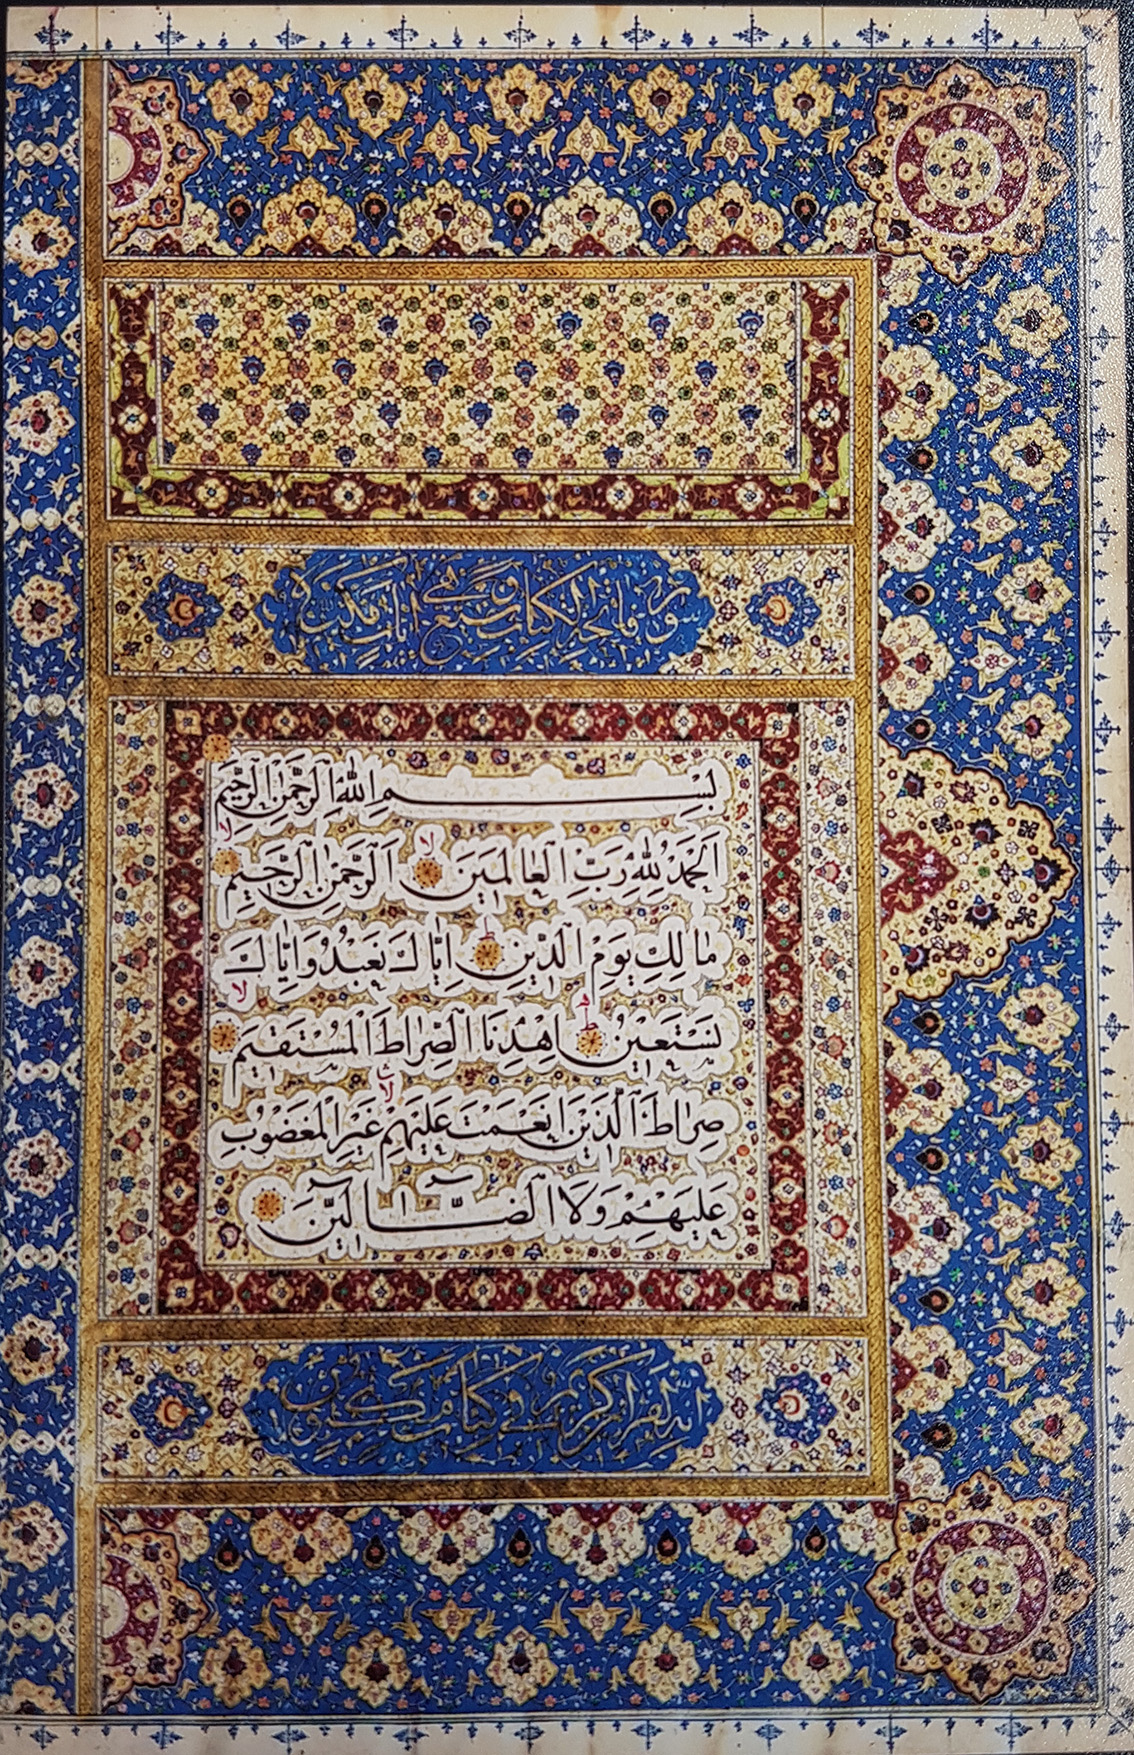 سورة فاتحة الكتاب وهي سبع آيات مكية
بِسْمِ اللّٰهِ الرَّحْمٰنِ الرَّحِيمِ
اَلْحَمْدُ لِلّٰهِ رَبِّ الْعَالَمِينَ لا اَلرَّحْمٰنِ الرَّحِيمِ لا
مَالِكِ يَوْمِ الدِّينِ ط اِيَّاكَ نَعْبُدُ وَاِيَّاكَ
نَسْتَعِينُ ط اِهْدِنَا الصِّرَاطَ الْمُسْتَقِيمَ لا
صِرَاطَ الَّذِينَ اَنْعَمْتَ عَلَيْهِمْ لا غَيْرِ الْمَغْضُوبِ
عَلَيْهِمْ وَلَا الضَّالِّينَ
انه لقرآن كريم في كتاب مكنون